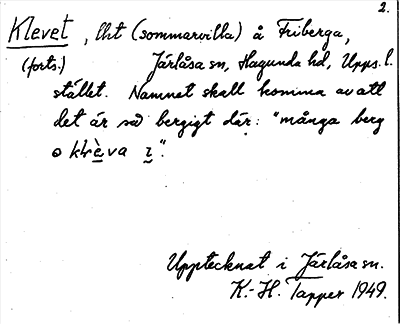 2.
Klevet, lht (sommarvilla) å Friberga,
(forts.) Järlåsa sn, Hagunda hd, Upps. l.
stället. Namnet skall komma av att
det är så bergigt där: "många berg
o klèva i".
Upptecknat i Järlåsa sn.
K.-H. Tapper 1949.